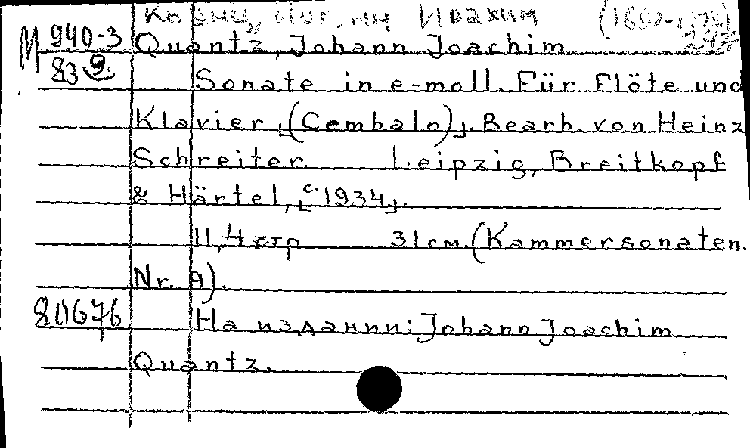 Иоганн Иоахим
М 940-3 Quantz, Johann Joachim
83 9. Sonate in e-moll. Für Flöte und
Klavier, (Cembalo). Bearb. von Heinz
Schreiter. Leipzig, Breitkopf
& Härtel, [c. 1934].
11, 4 стр 31 см. (Kammersonaten.
Nr. 9).
80676 На издании: Johann Joachim
Quantz.